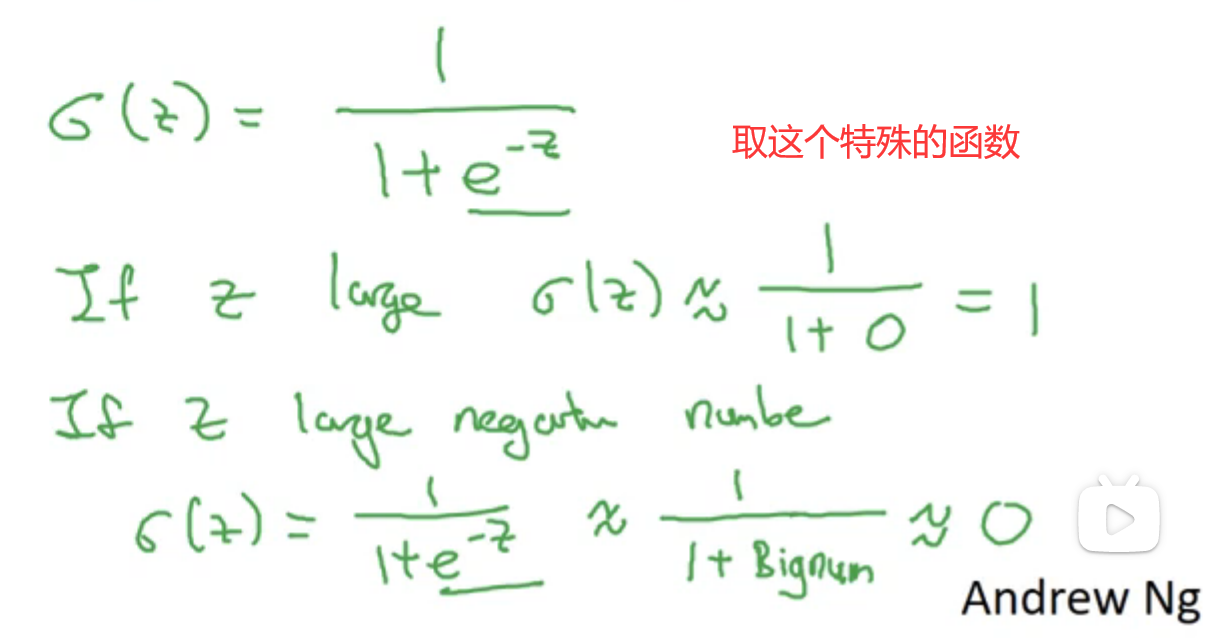 σ(z) = 1 / (1 + e^{-z})
取这个特殊的函数
If z large σ(z) ≈ 1 / (1 + 0) = 1
If z large negative number
σ(z) = 1 / (1 + e^{-z}) ≈ 1 / (1 + Bignum) ≈ 0
Andrew Ng